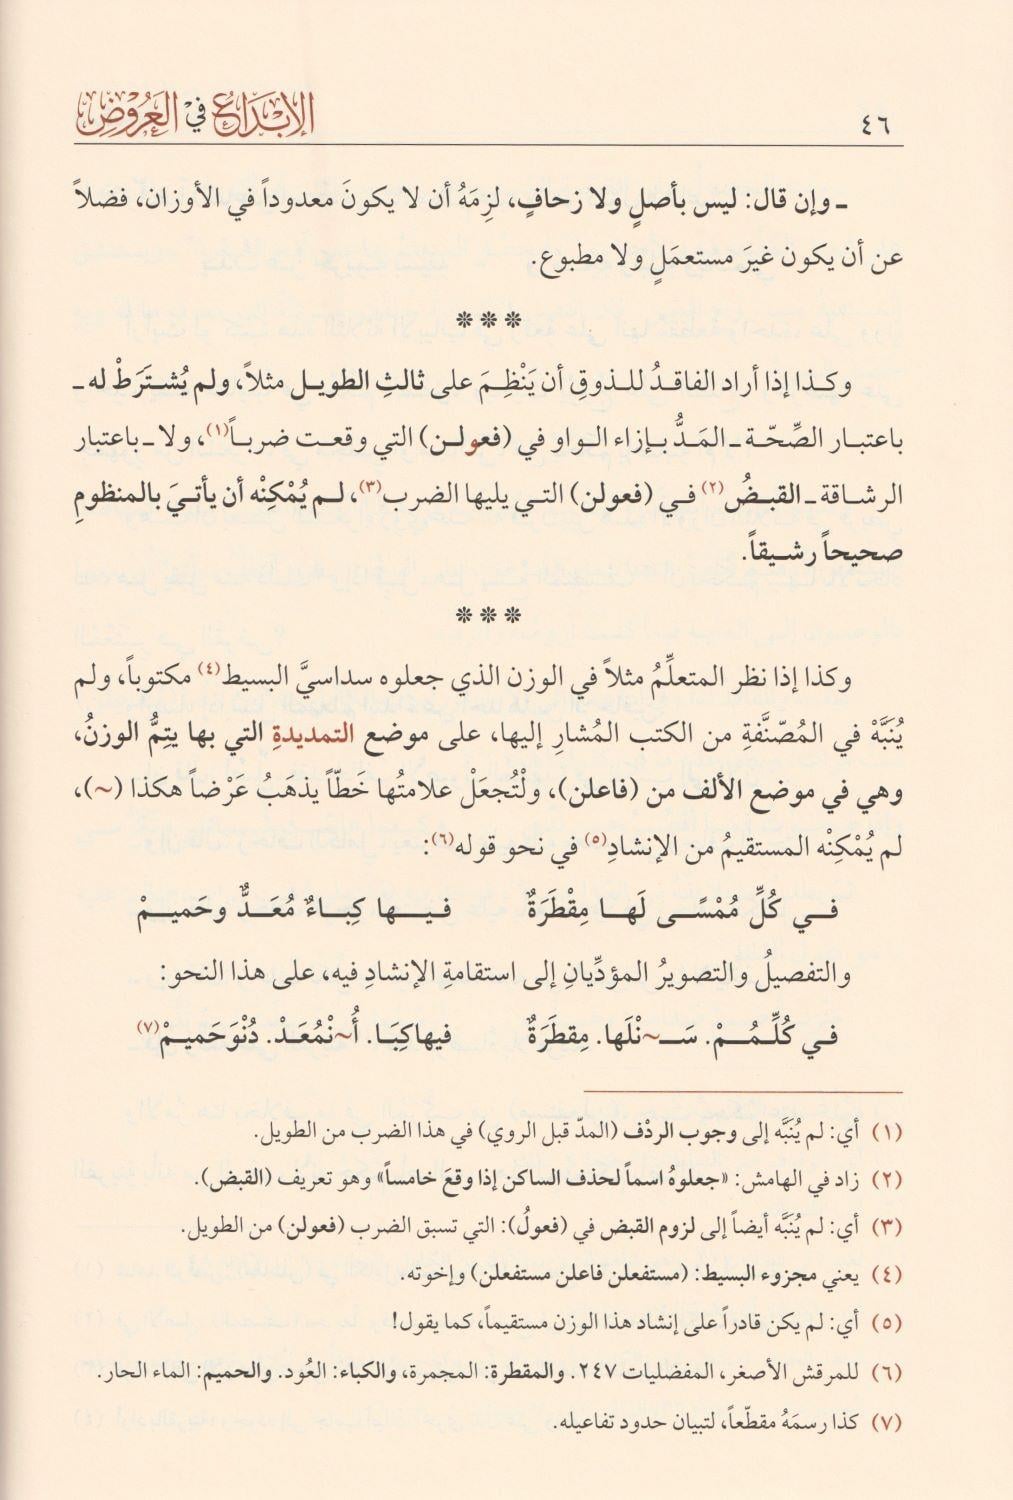 ٤٦
الإبْدَاعُ في العَرُوض
ـ وإن قال: ليس بأصلٍ ولا زحافٍ، لزِمَهُ أن لا يكونَ معدوداً في الأوزان، فضلاً
عن أن يكون غيرَ مستعمَلٍ ولا مطبوع.
* * *
وكذا إذا أراد الفاقدُ للذوقِ أن يَنْظِمَ على ثالثِ الطويل مثلاً، ولم يُشتَرَطْ له ـ
باعتبار الصِّحّة ـ المَدُّ بإزاء الواو في (فعولن) التي وقعت ضرباً(١)، ولا ـ باعتبار
الرشاقة ـ القبضُ(٢) في (فعولن) التي يليها الضرب(٣)، لم يُمْكِنْه أن يأتيَ بالمنظومِ
صحيحاً رشيقاً.
* * *
وكذا إذا نظر المتعلِّمُ مثلاً في الوزن الذي جعلوه سداسيَّ البسيط(٤) مكتوباً، ولم
يُنَبَّهْ في المُصنَّفةِ من الكتب المُشارِ إليها، على موضع التمديدةِ التي بها يتِمُّ الوزنُ،
وهي في موضع الألف من (فاعلن)، ولْتُجعَلْ علامتُها خَطّاً يذهَبُ عَرْضاً هكذا (~)،
لم يُمْكِنْه المستقيمُ من الإنشادِ(٥) في نحو قوله(٦):
في كُلِّ مُمْسًى لَها مِقْطَرَةٌ فيها كِباءٌ مُعَدٌّ وحَميمْ
والتفصيلُ والتصويرُ المؤدِّيانِ إلى استقامةِ الإنشادِ فيه، على هذا النحو:
في كُلِّمُمْ. سَ~نْلَها. مِقطَرَةٌ فيهاكِبَا. أُ~نْمُعَدْ. دُنْوَحَميمْ(٧)
(١) أي: لم يُنَبَّه إلى وجوب الردْف (المدّ قبل الروي) في هذا الضرب من الطويل.
(٢) زاد في الهامش: «جعلوهُ اسماً لحذف الساكن إذا وقعَ خامساً» وهو تعريف (القبض).
(٣) أي: لم يُنَبَّه أيضاً إلى لزوم القبض في (فعولُ): التي تسبق الضرب (فعولن) من الطويل.
(٤) يعني مجزوء البسيط: (مستفعلن فاعلن مستفعلن) وإخوته.
(٥) أي: لم يكن قادراً على إنشاد هذا الوزن مستقيماً، كما يقول!
(٦) للمرقش الأصغر، المفضليات ٢٤٧. والمقطرة: المجمرة، والكباء: العُود. والحميم: الماء الحار.
(٧) كذا رسمَهُ مقطّعاً، لتبيان حدود تفاعيله.